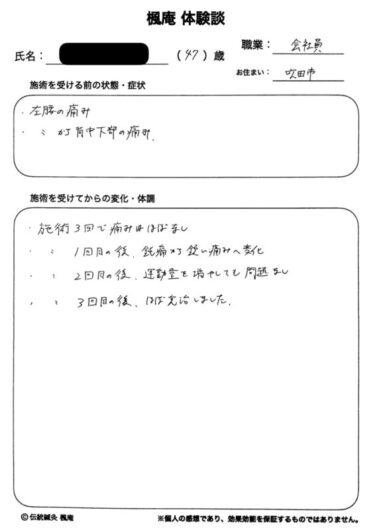 楓庵 体験談
氏名： （47）歳
職業： 会社員
お住まい： 吹田市
施術を受ける前の状態・症状
・左腰の痛み
・〃 から背中下部の痛み.
施術を受けてからの変化・体調
・施術3回で痛みはほぼなし
・〃 1回目の後、鈍痛から鋭い痛みへ変化
・〃 2回目の後、運動量を増やしても問題なし
・〃 3回目の後、ほぼ完治しました.
© 伝統鍼灸 楓庵
※個人の感想であり、効果効能を保証するものではありません。